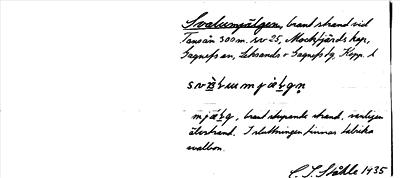 Svalumjälgen, brant strand vid
Tansån 300 m. sv 25, Mockfjärds kap,
Gagnefs sn, Leksands o Gagnefs tg, Kopp. l
mjälg, brant stupande strand, vanligen
älvstrand. I sluttningen finnas talrika
svalbon.
C. I. Ståhle 1935